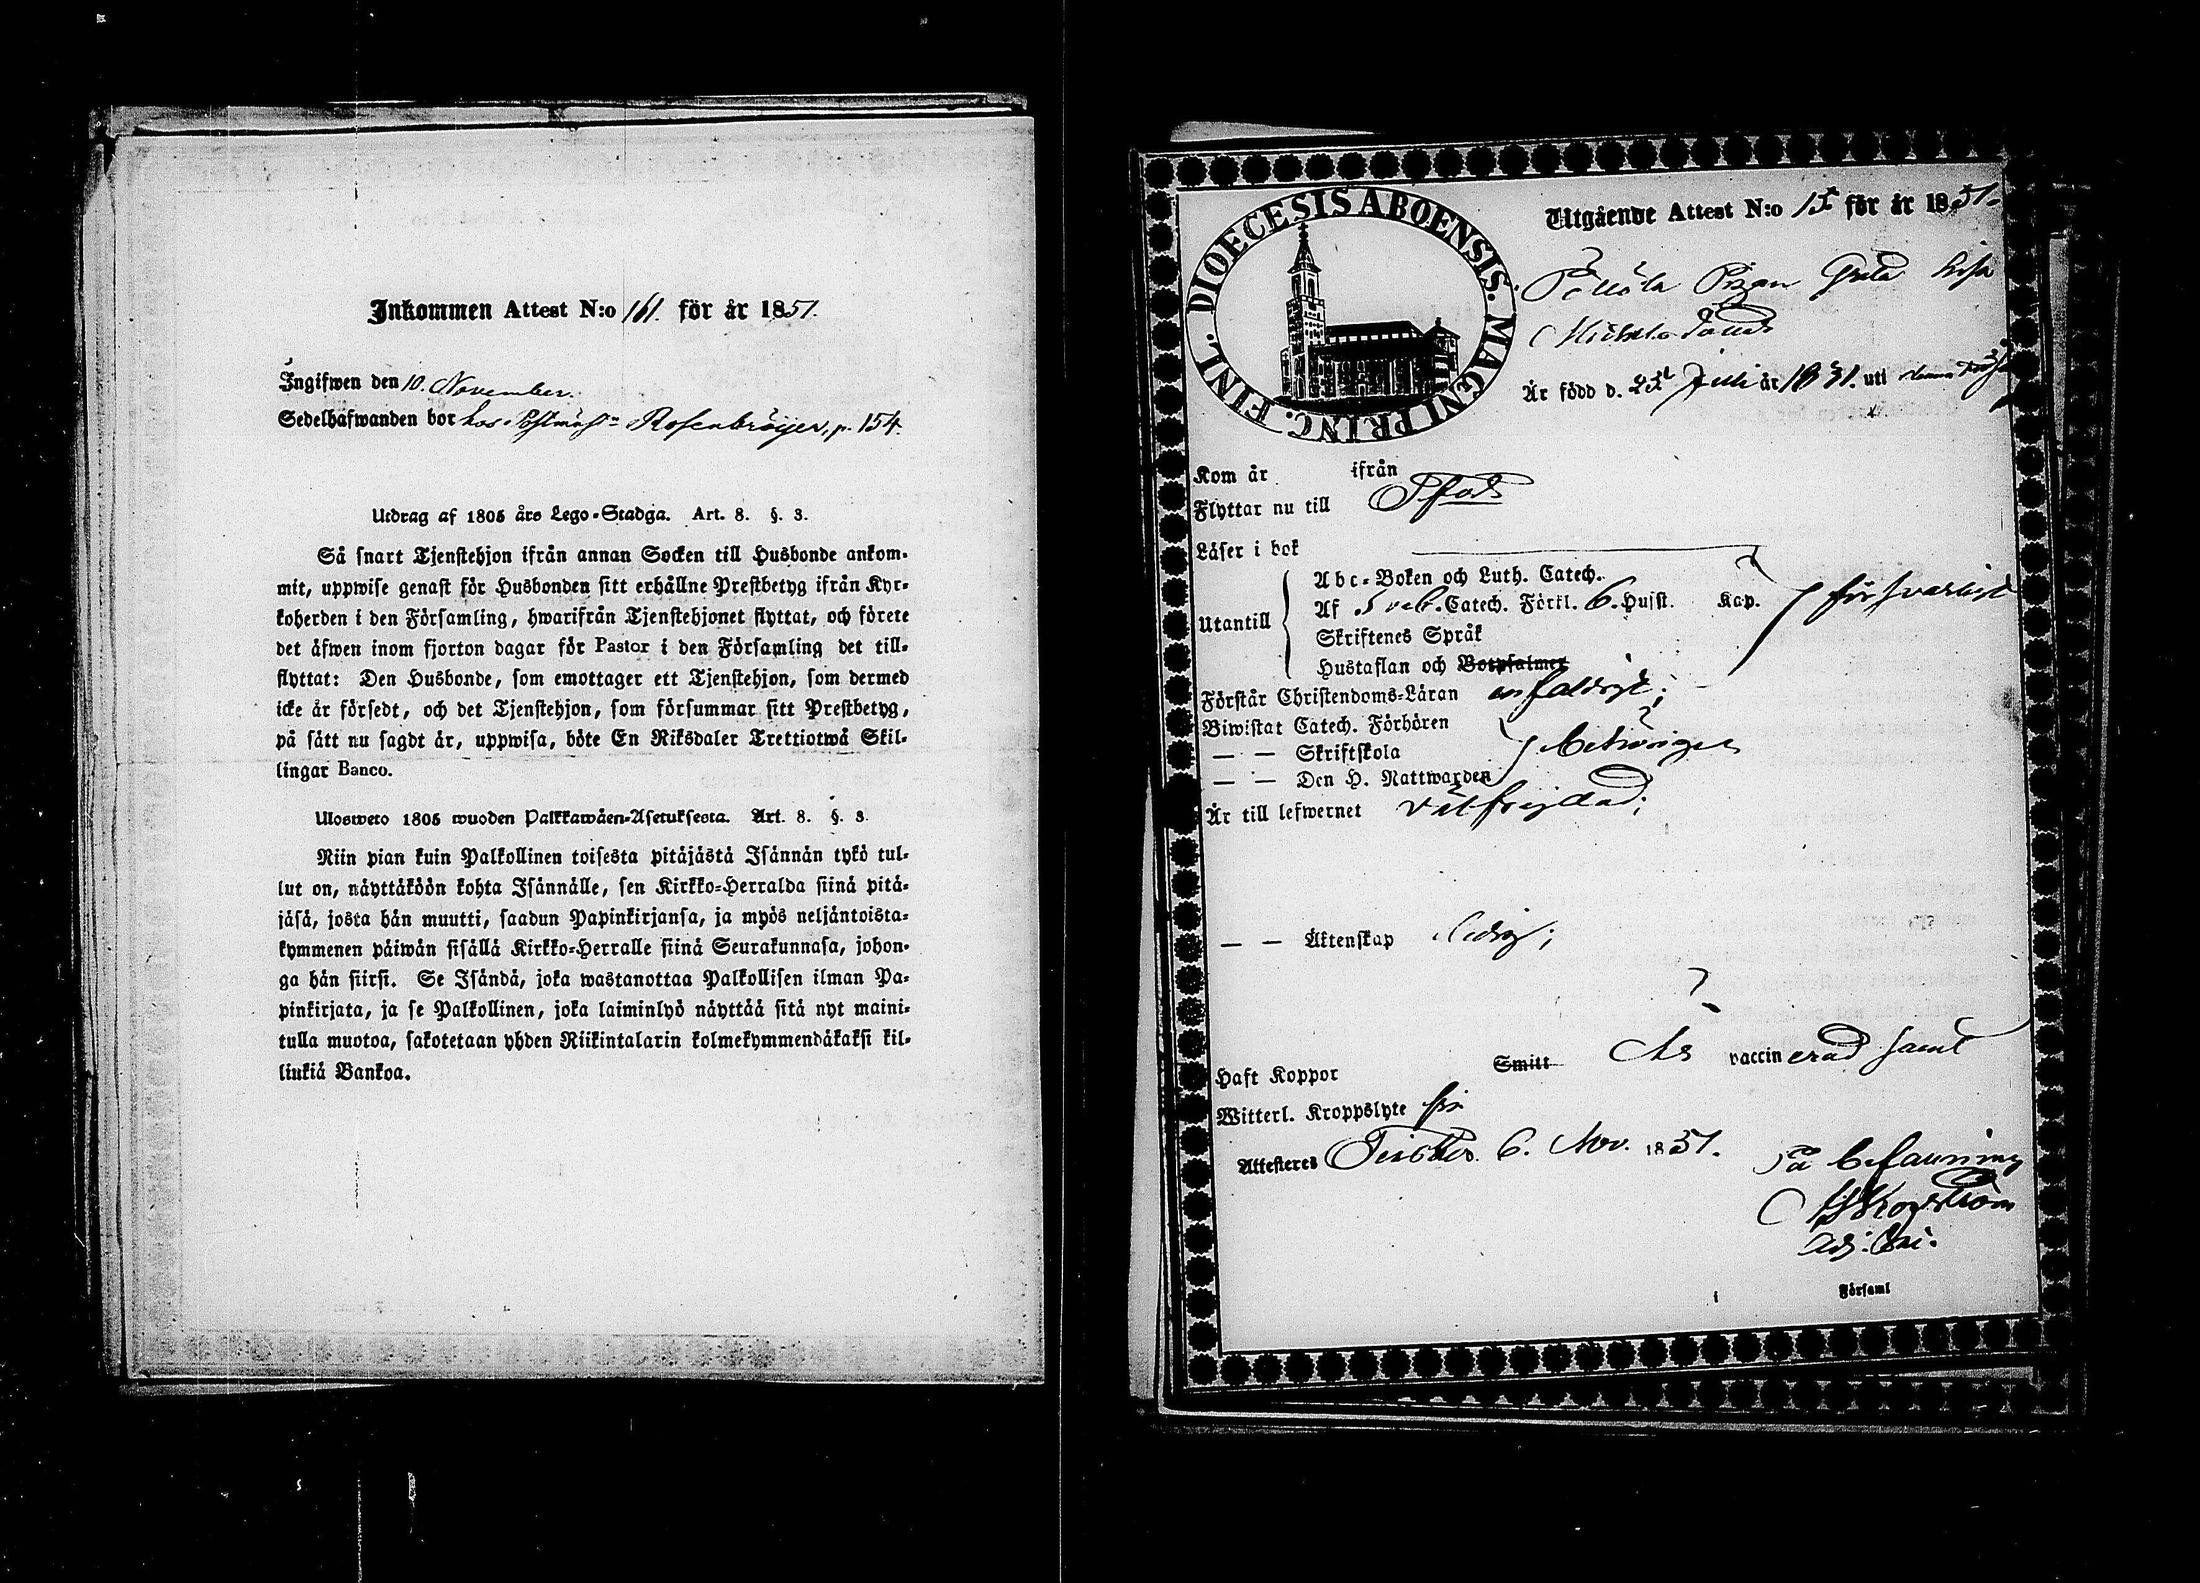 Inkommen Attest N:o 161. för år 1851.
Ingifwen den 10. November.
Sedelhafwanden bor hos Postmäst:n Rosenbröijer, p. 154.
Utdrag af 1805 års Lego-Stadga. Art. 8. §. 3.
Så snart Tjenstehjon ifrån annan Socken till Husbonde ankom-
mit, uppwise genast för Husbonden sitt erhållne Prestbetyg ifrån Kyr-
koherden i den Församling, hwarifrån Tjenstehjonet flyttat, och förete
det äfwen inom fjorton dagar för Pastor i den Församling det till-
flyttat: Den Husbonde, som emottager ett Tjenstehjon, som dermed
icke är försedt, och det Tjenstehjon, som försummar sitt Prestbetyg,
på sätt nu sagdt är, uppwisa, böte En Riksdaler Trettiotwå Skil-
lingar Banco.
Ulosweto 1805 wuoden Palkkawäen-Asetuksesta. Art. 8. §. 3.
Niin pian kuin Palkollinen toisesta pitäjästä Isännän tykö tul-
lut on, näyttäköön kohta Isännälle, sen Kirkko-Herralda siinä pitä-
jäsä, josta hän muutti, saadun Papinkirjansa, ja myös neljäntoista-
kymmenen päiwän sisällä Kirkko-Herralle siinä Seurakunnasa, johon-
ga hän siirsi. Se Isändä, joka wastanottaa Palkollisen ilman Pa-
pinkirjata, ja se Palkollinen, joka laiminlyö näyttää sitä nyt maini-
tulla muotoa, sakotetaan yhden Riikintalarin kolmekymmendäkaksi kil-
linkiä Bankoa.
DIOECESIS ABOENSIS. MAGNI PRINC. FINL.
Utgående Attest N:o 15 för år 1851.
Pigan Greta Lisa
Michelsdotter
Är född d. 25 Juli år 1831. uti denna
Kom år ifrån
Flyttar nu till
Läser i bok
Abc-Boken och Luth. Catech.
Utantill Af Sveb. Catech. Förkl. 6. Hufst. Kap. försvarligt
Skriftenes Språk
Hustaflan och Botpsalmer
Förstår Christendoms-Läran enfaldigt;
Biwistat Catech. Förhören
— — Skriftskola behörigen
— — Den H. Nattwarden
Är till lefwernet välfrejdad;
— — Äktenskap ledig;
Haft Koppor Smitt Är vaccinerad samt
Witterl. Kroppslyte fri
Attesteres 6. Nov. 1851.
På befallning
Adj.
i Församl